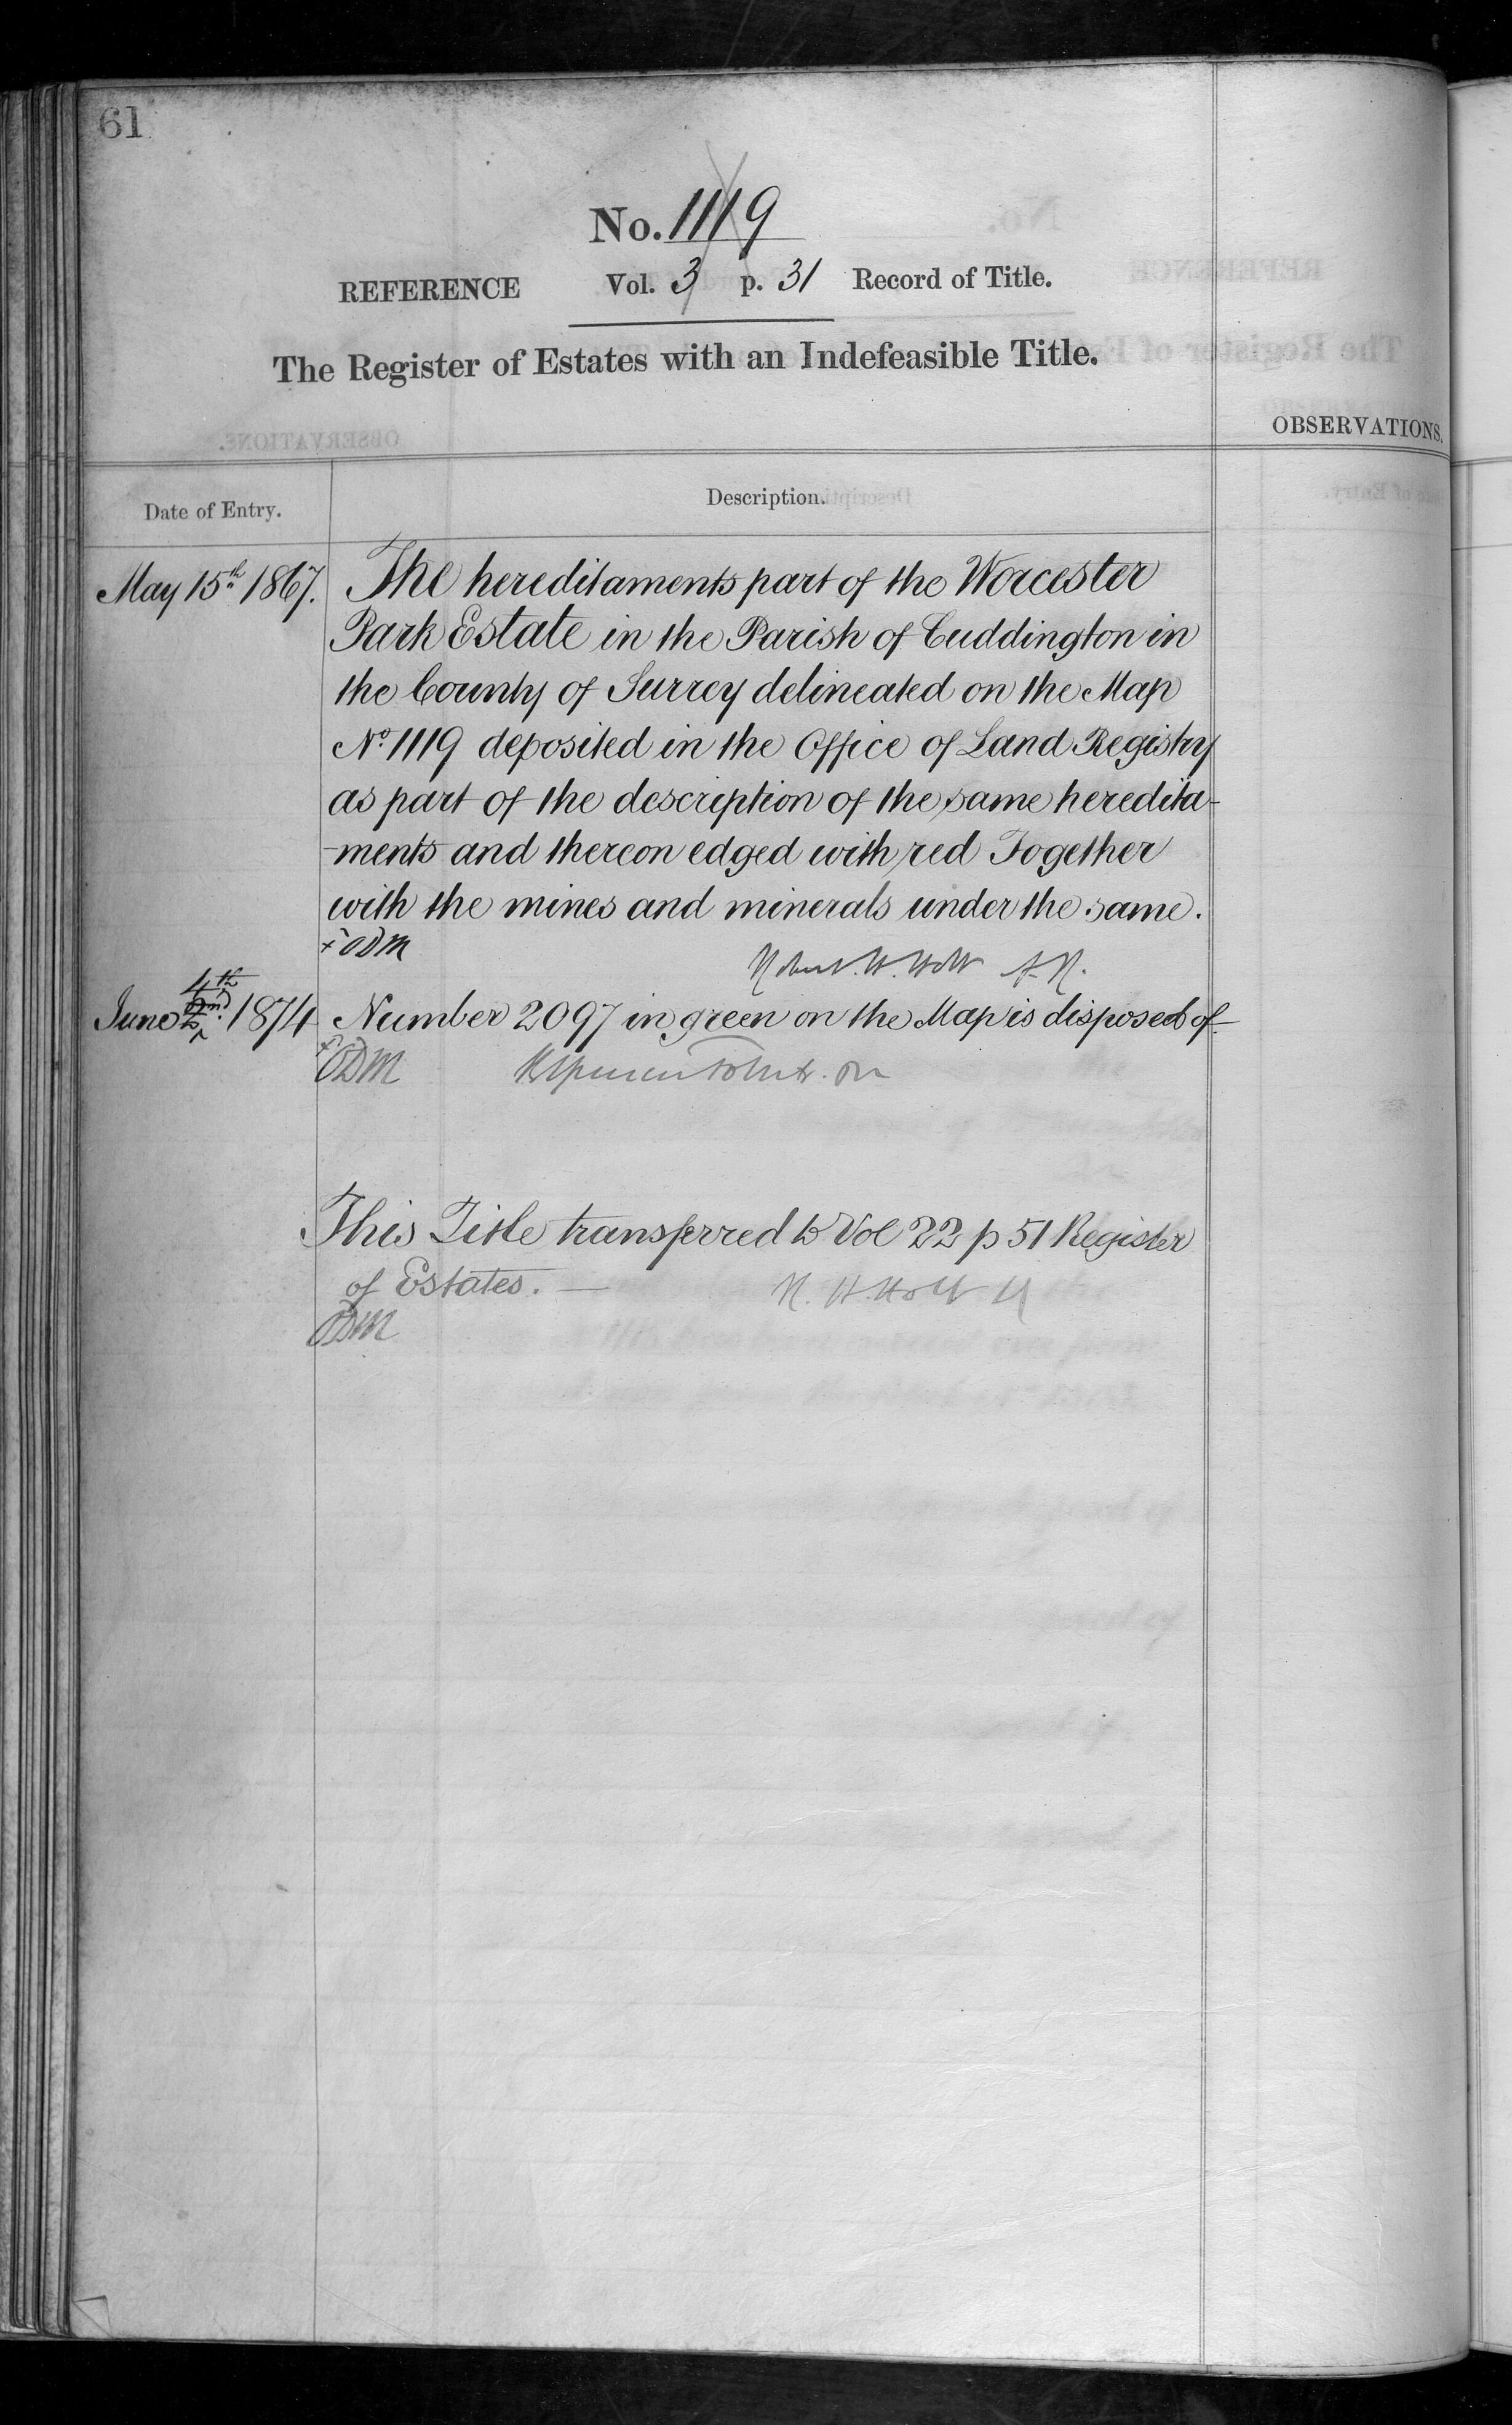 61
No. 1119
REFERENCE Vol. 3 p. 31 Record of Title.
The Register of Estates with an Indefeasible Title.
OBSERVATIONS.
Date of Entry.
Description.
May 15th 1867. The hereditaments part of the Worcester
Park Estate in the Parish of Cuddington in
the County of Surrey delineated on the Map
No. 1119 deposited in the Office of Land Registry
as part of the description of the same heredita-
-ments and thereon edged with red Together
with the mines and minerals under the same.
+ ODM
Robert. H. Holt A. R.
4th
June 2nd 1874 Number 2097 in green on the Map is disposed of
+ ODM
This Title transferred to Vol 22 p 51 Register
of Estates. — R. H. Holt
ODM